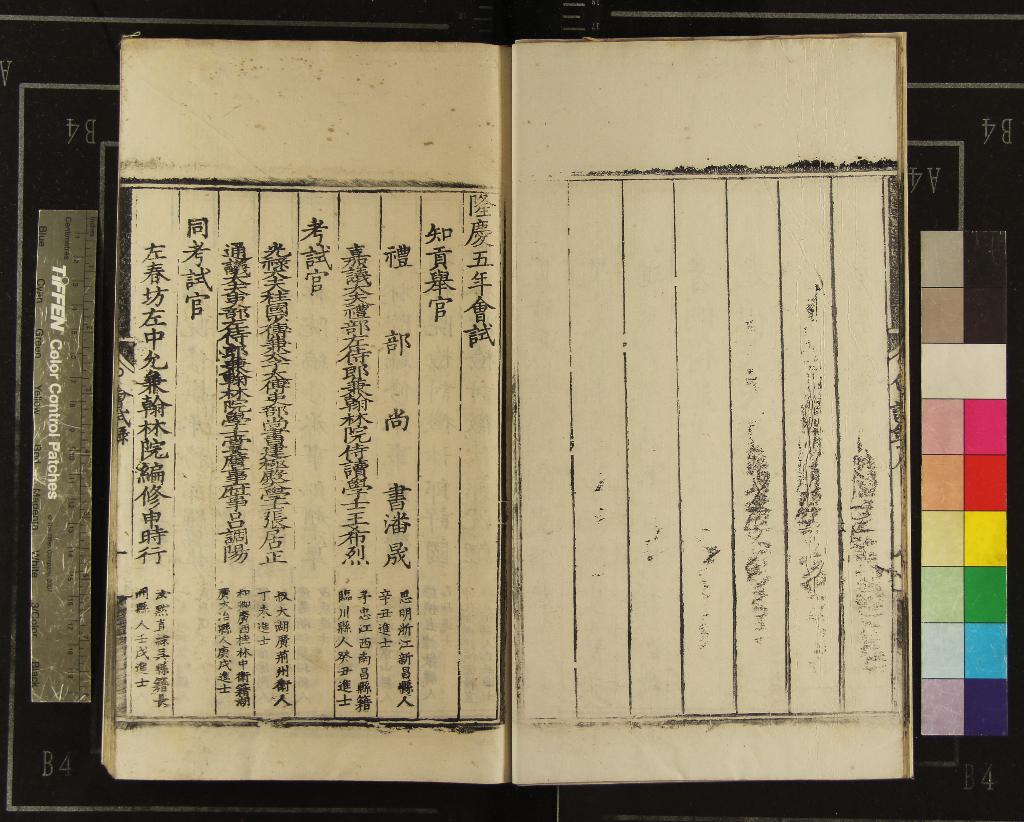 隆慶五年會試
知貢舉官
禮部尚書潘晟
思明浙江新昌縣人
辛丑進士
嘉議大夫禮部左侍郎兼翰林院侍讀學士王希烈
子忠江西南昌縣籍
臨川縣人癸丑進士
考試官
光祿大夫柱國少傅兼太子太傅吏部尚書建極殿大學士張居正
叔大湖廣荊州衛人
丁未進士
通議大夫吏部左侍郎兼翰林院學士掌詹事府事呂調陽
和卿廣西桂林中衛籍湖
廣大冶縣人庚戌進士
同考試官
左春坊左中允兼翰林院編修申時行
汝默直隸吳縣籍長
洲縣人壬戌進士
會試錄
TIFFEN Color Control Patches
Centimetres
Blue
Green
Yellow
Magenta
White
3/Color
Black
B4
B4
A4
B4
B4